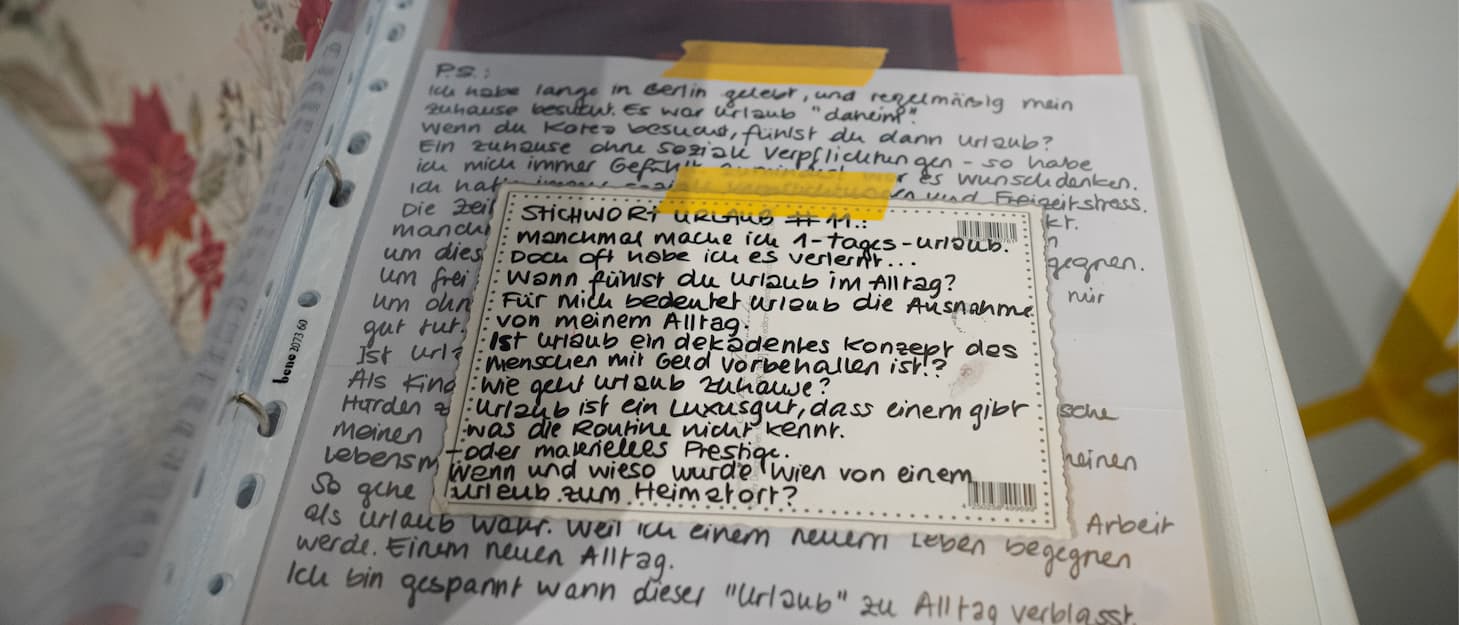 P.S.:
Ich habe lange in Berlin gelebt, und regelmäßig mein
zuhause besucht. Es war Urlaub "daheim".
Wenn du Korea besuchst, fühlst du dann Urlaub?
Ein zuhause ohne soziale Verpflichtungen - so habe
ich mich immer Gefühlt es wunschdenken.
Ich und Freizeitstress.
Die Zeit kt.
manch
um dies gegnen.
um frei mir
um ohn
gut tut.
Ist Url
Als Kind
Hürden sche
meinen
Lebensm meinen
So gehe Arbeit
als Urlaub wahr. Weil ich einem neuem Leben begegnen
werde. Einem neuen Alltag.
Ich bin gespannt wann dieser "Urlaub" zu Alltag verblasst.
STICHWORT URLAUB #11.:
Manchmal mache ich 1-Tages-Urlaub.
Doch oft habe ich es verlernt...
Wann fühlst du Urlaub im Alltag?
Für mich bedeutet Urlaub die Ausnahme
von meinem Alltag.
Ist Urlaub ein dekadentes Konzept des
Menschen mit Geld vorbehalten ist!?
Wie geht Urlaub zuhause?
Urlaub ist ein Luxusgut, dass einem gibt
was die Routine nicht kennt.
- oder materielles Prestige.
Wenn und wieso wurde Wien von einem
Urlaub zum Heimatort?
bene 2073 60